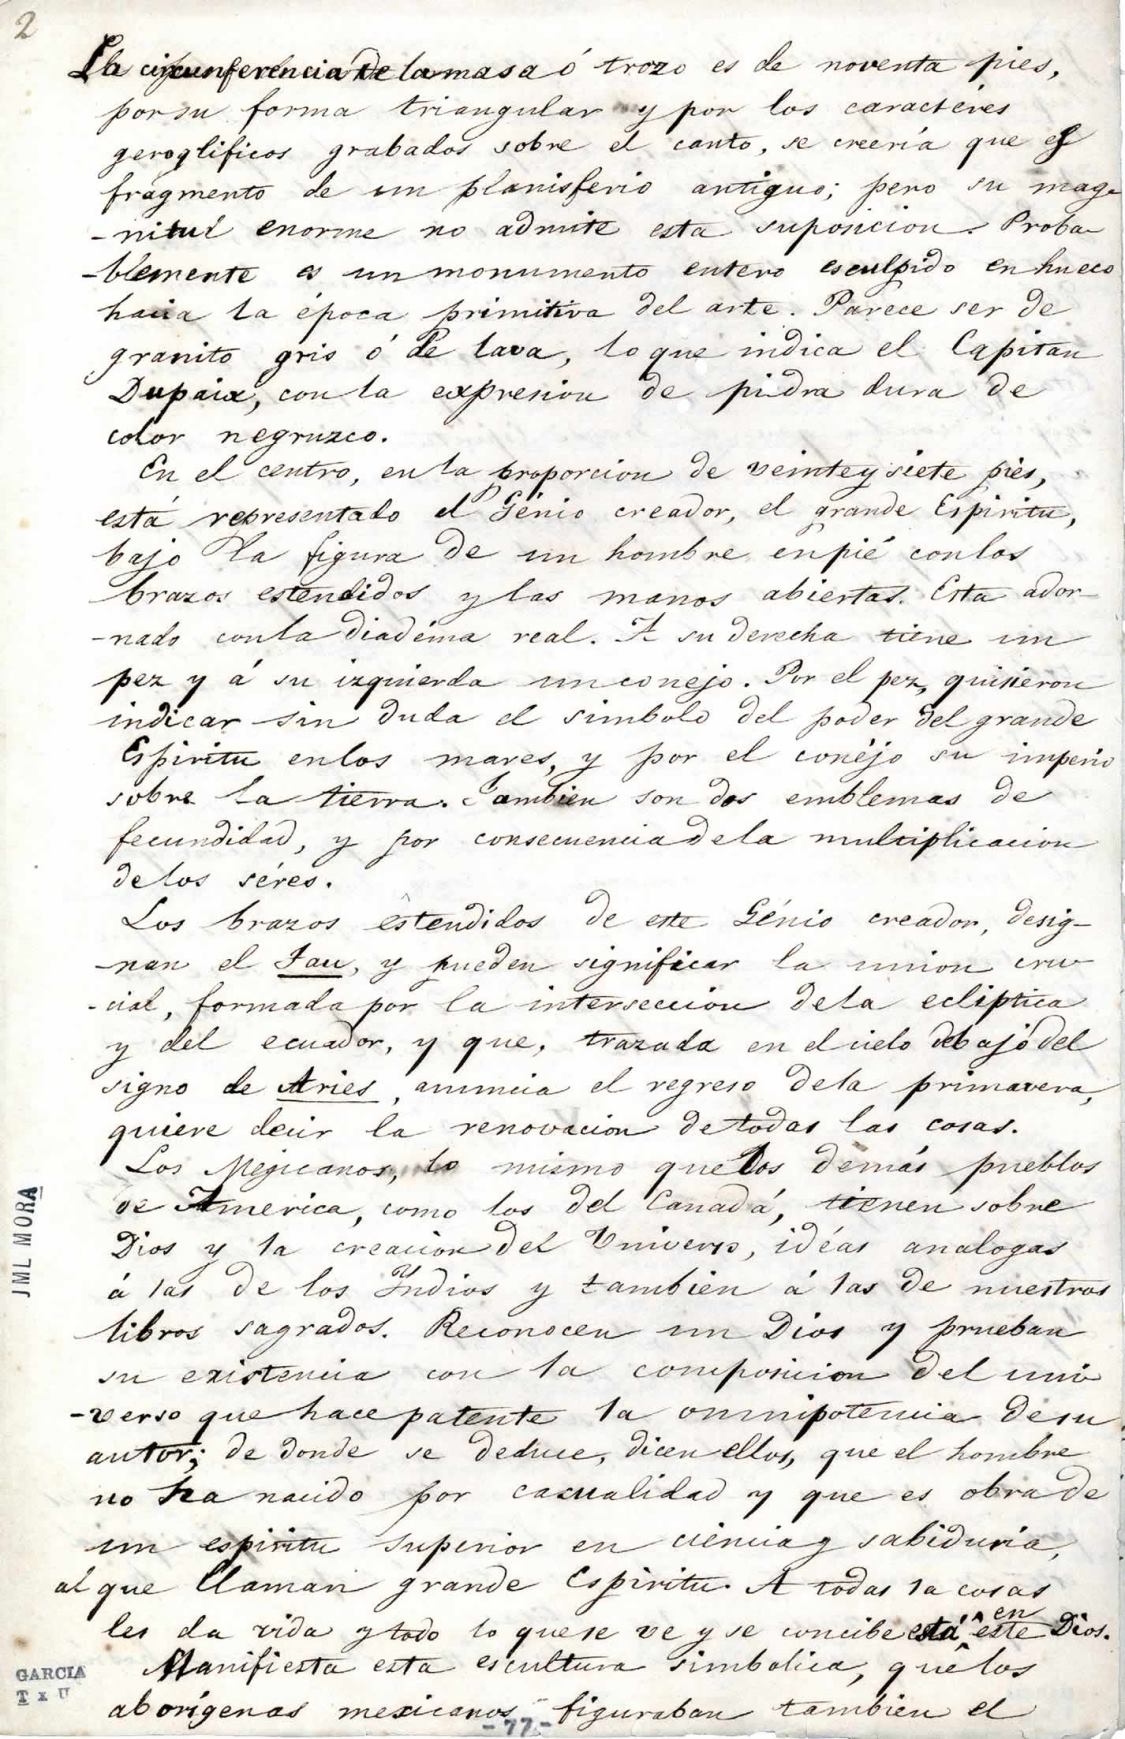 2
La circunferencia de la masa ó trozo es de noventa pies,
por su forma triangular y por los caractéres
geroglificos grabados sobre el canto, se creería que es
fragmento de un planisferio antiguo; pero su mag-
-nitud enorme no admite esta suposicion. Proba-
-blemente es un monumento entero esculpido en hueco
hacia la época primitiva del arte. Parece ser de
granito gris ó de lava, lo que indica el Capitan
Dupaix, con la expresion de piedra dura de
color negruzco.
En el centro, en la proporcion de veinte y siete piés,
está representado el Génio creador, el grande Espiritu,
bajo la figura de un hombre en pié con los
brazos estendidos y las manos abiertas. Esta ador-
-nado con la diadéma real. A su derecha tiene un
pez y á su izquierda un conejo. Por el pez, quisieron
indicar sin duda el simbolo del poder del grande
Espiritu en los mares, y por el conéjo su imperio
sobre la tierra. Tambien son dos emblemas de
fecundidad, y por consecuencia de la multiplicacion
de los séres.
Los brazos estendidos de este Génio creador, desig-
-nan el Tau, y pueden significar la union cru-
-cial, formada por la interseccion de la ecliptica
y del ecuador, y que, trazada en el cielo debajo del
signo de Aries, anuncia el regreso de la primavera,
quiere decir la renovacion de todas las cosas.
Los Mejicanos, lo mismo que los demás pueblos
de America, como los del Canadá, tienen sobre
Dios y la creacion del Universo, idéas analogas
á las de los Yndios y tambien á las de nuestros
libros sagrados. Reconocen un Dios y prueban
su existencia con la composicion del uni-
-verso que hace patente la omnipotencia de su
autor; de donde se deduce, dicen ellos, que el hombre
no ha nacido por casualidad y que es obra de
un espiritu superior en ciencia y sabiduria,
al que llaman grande Espiritu. A todas la cosas
les da vida y todo lo que se ve y se concibe está en este Dios.
Manifiesta esta escultura simbolica, que los
aborígenas mexicanos figuraban tambien el
-77-
JML MORA
GARCIA
T x U